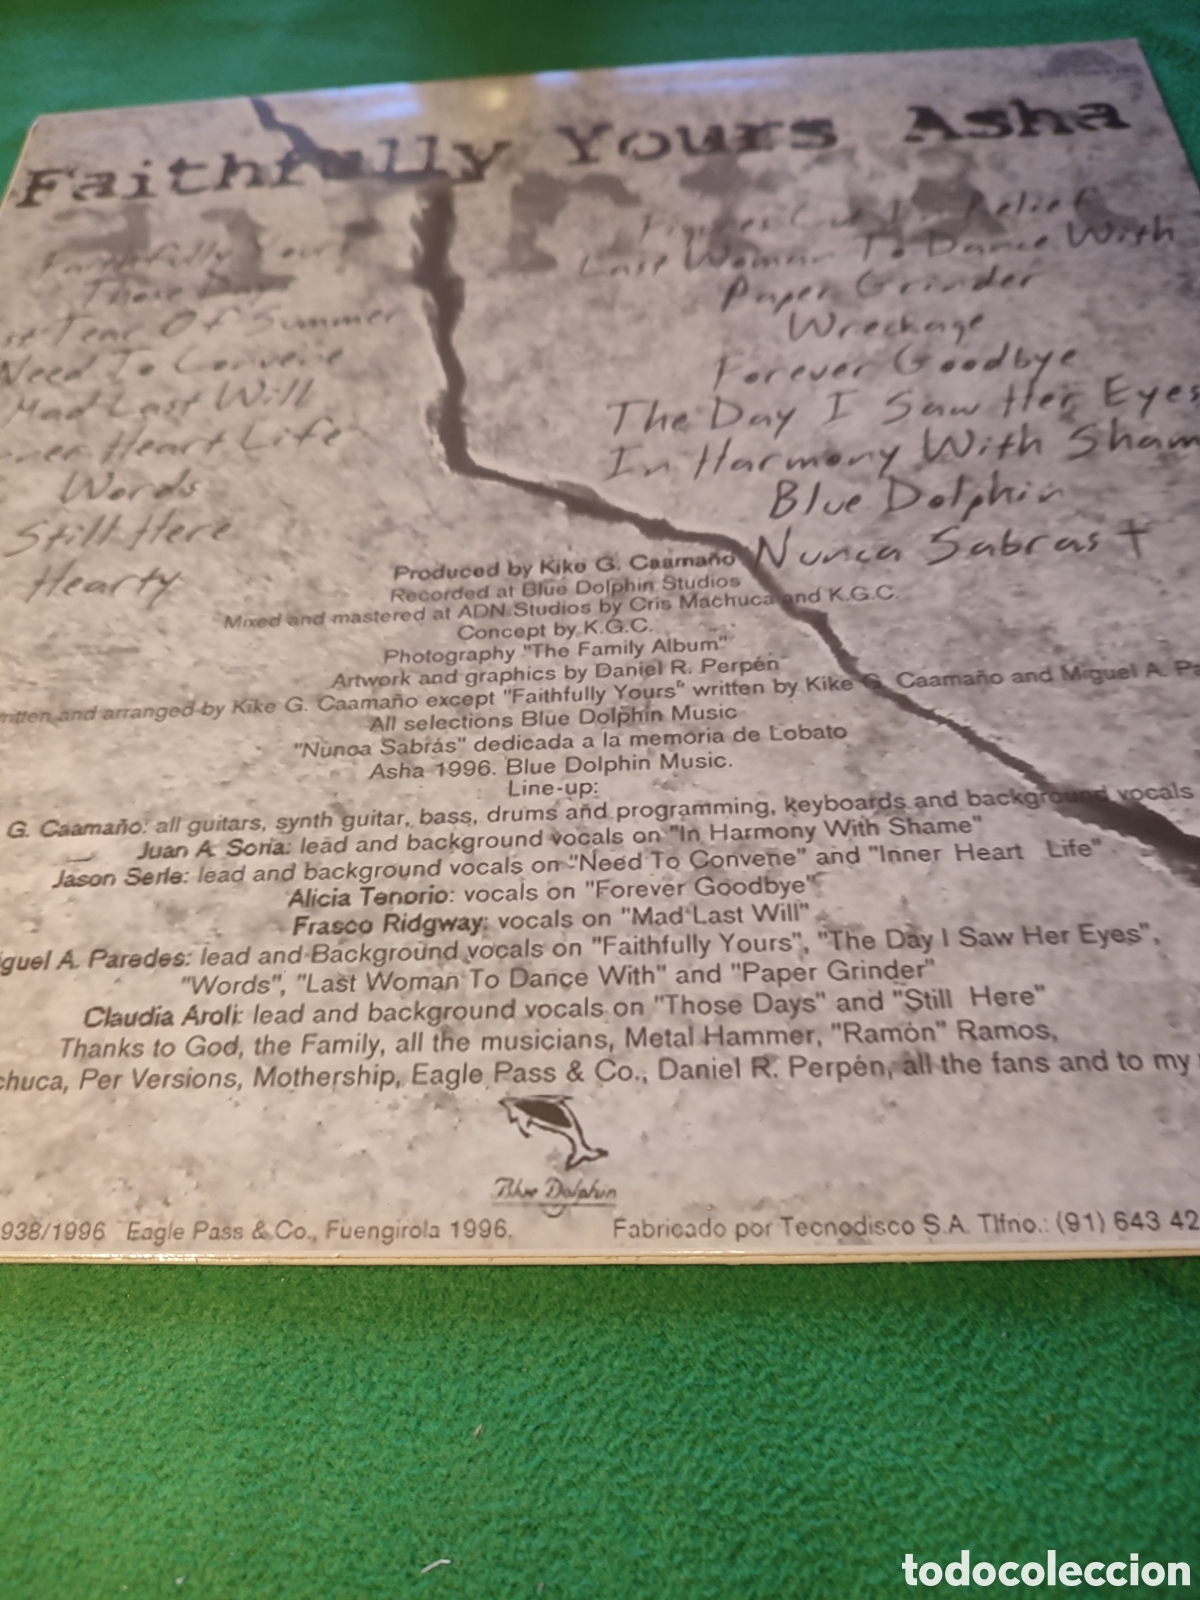 Faithfully Yours Asha
Faithfully Yours
Those Days
st Tear Of Summer
Need To Convene
Mad Last Will
ner Heart Life
Words
Still Here
Hearty
Figures Cut In Relief
Last Woman To Dance With
Paper Grinder
Wreckage
Forever Goodbye
The Day I Saw Her Eyes
In Harmony With Sham
Blue Dolphin
Nunca Sabras †
Produced by Kike G. Caamaño
Recorded at Blue Dolphin Studios
Mixed and mastered at ADN Studios by Cris Machuca and K.G.C.
Concept by K.G.C.
Photography "The Family Album"
Artwork and graphics by Daniel R. Perpén
ritten and arranged by Kike G. Caamaño except "Faithfully Yours" written by Kike G. Caamaño and Miguel A. Pa
All selections Blue Dolphin Music
"Nunca Sabrás" dedicada a la memoria de Lobato
Asha 1996. Blue Dolphin Music.
Line-up:
G. Caamaño: all guitars, synth guitar, bass, drums and programming, keyboards and background vocals
Juan A. Soria: lead and background vocals on "In Harmony With Shame"
Jason Serle: lead and background vocals on "Need To Convene" and "Inner Heart Life"
Alicia Tenorio: vocals on "Forever Goodbye"
Frasco Ridgway: vocals on "Mad Last Will"
guel A. Paredes: lead and Background vocals on "Faithfully Yours", "The Day I Saw Her Eyes",
"Words", "Last Woman To Dance With" and "Paper Grinder"
Claudia Aroli: lead and background vocals on "Those Days" and "Still Here"
Thanks to God, the Family, all the musicians, Metal Hammer, "Ramón" Ramos,
chuca, Per Versions, Mothership, Eagle Pass & Co., Daniel R. Perpén, all the fans and to my
Blue Dolphin
938/1996 Eagle Pass & Co., Fuengirola 1996.
Fabricado por Tecnodisco S.A. Tlfno.: (91) 643 42
todocoleccion